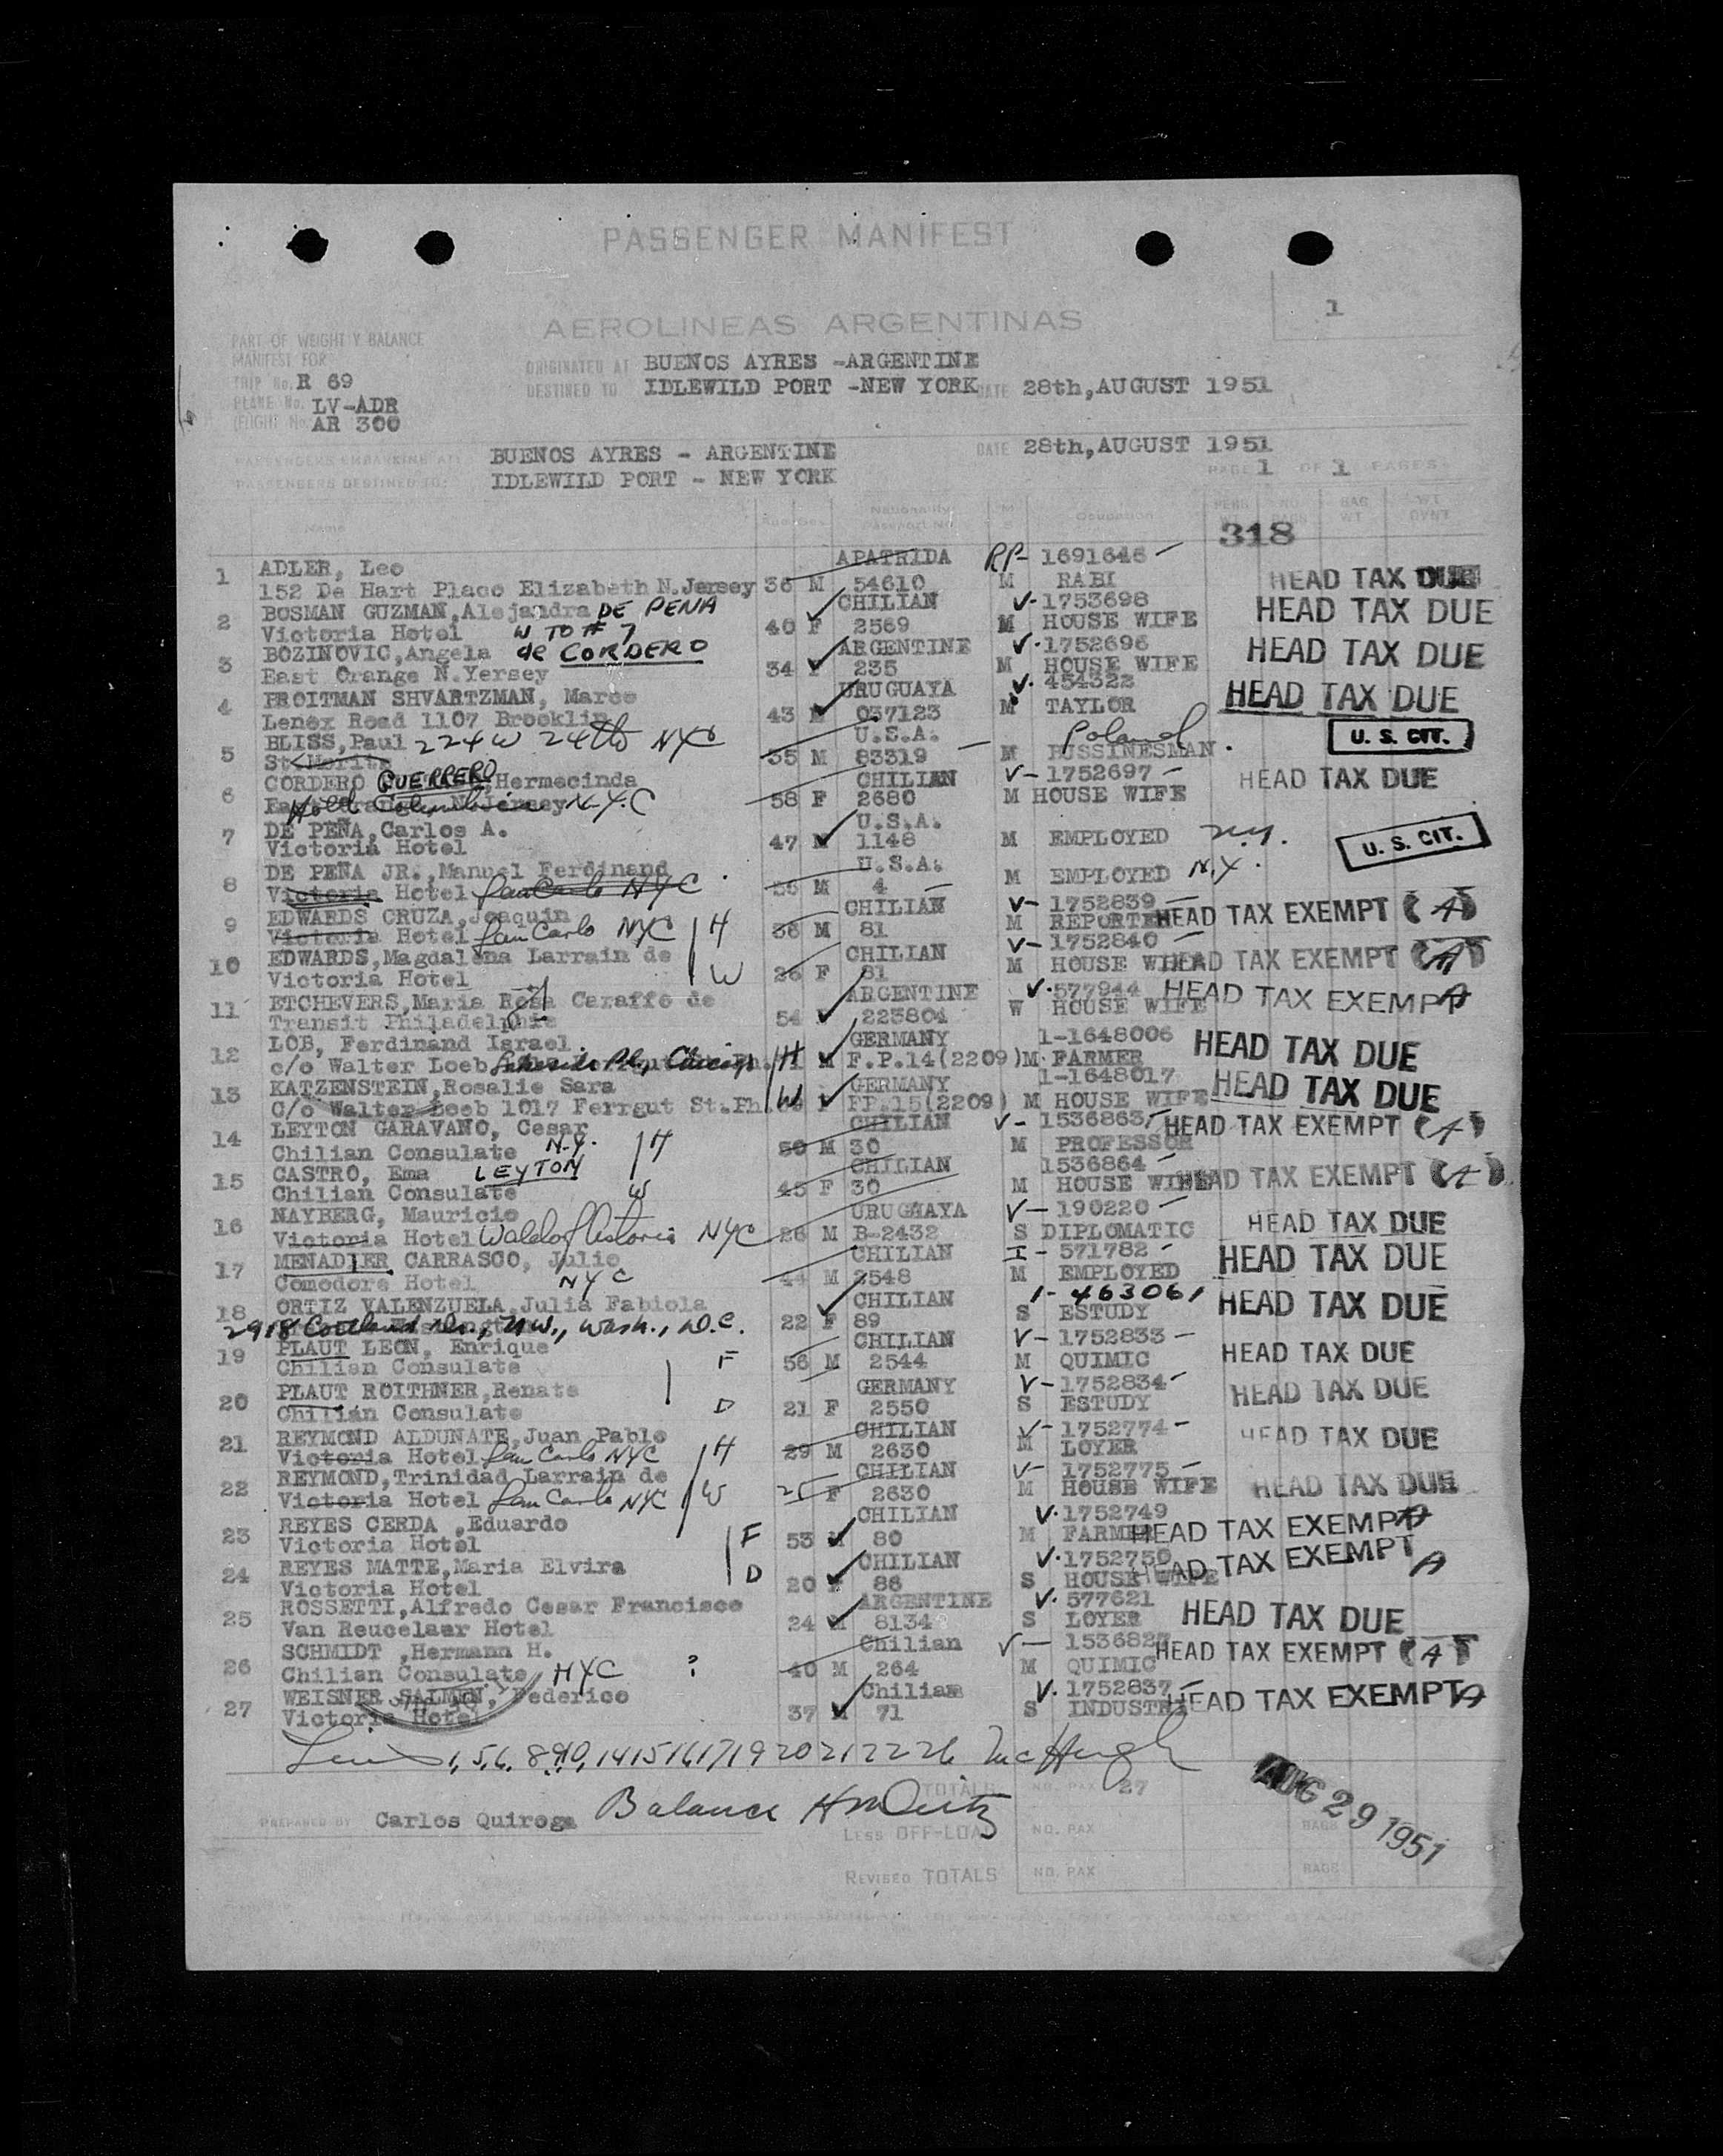 PASSENGER MANIFEST
1
AEROLINEAS ARGENTINAS
PART OF WEIGHT Y BALANCE
MANIFEST FOR
TRIP No. R 69
PLANE No. LV-ADR
(FLIGHT No. AR 300
ORIGINATED AT BUENOS AYRES -ARGENTINE
DESTINED TO IDLEWILD PORT -NEW YORK DATE 28th,AUGUST 1951
PASSENGERS EMBARKING AT: BUENOS AYRES - ARGENTINE DATE 28th,AUGUST 1951
PASSENGERS DESTINED TO: IDLEWILD PORT - NEW YORK PAGE 1 OF 1 PAGES
Name Nationality Passport No. Ocupation BAG WT
318
APATRIDA RP- 1691646
1 ADLER, Leo
152 De Hart Place Elizabeth N.Jersey 36 M 54610 M RABI HEAD TAX DUE
2 BOSMAN GUZMAN,Alejandra DE PENA CHILIAN V-1753698 HEAD TAX DUE
Victoria Hotel W TO # 7 40 F 2569 M HOUSE WIFE
3 BOZINOVIC,Angela de CORDERO ARGENTINE V-1752696 HEAD TAX DUE
East Orange N.Yersey 34 F 235 M HOUSE WIFE
4 FROITMAN SHVARTZMAN, Marco URUGUAYA V-454322 HEAD TAX DUE
Lenox Road 1107 Brooklin 43 M 037123 M TAYLOR
5 BLISS,Paul 224 W 24th NYC U.S.A. Poland U. S. CIT.
St.Moritz 35 M 83319 M BUSSINESMAN
6 CORDERO GUERRERO,Hermecinda CHILIAN V-1752697 HEAD TAX DUE
N.Y.C 58 F 2680 M HOUSE WIFE
7 DE PEÑA,Carlos A. U.S.A.
Victoria Hotel 47 M 1148 M EMPLOYED N.Y. U. S. CIT.
8 DE PEÑA JR.,Manuel Ferdinand U.S.A.
Victoria Hotel San Carlo NYC 56 M 4 M EMPLOYED N.Y.
9 EDWARDS CRUZA,Joaquin CHILIAN V-1752839 HEAD TAX EXEMPT (A)
Victoria Hotel San Carlo NYC H 36 M 81 M REPORTER
10 EDWARDS,Magdalena Larrain de CHILIAN V-1752840 HEAD TAX EXEMPT (A)
Victoria Hotel W 26 F 81 M HOUSE WIFE
11 ETCHEVERS,Maria Rosa Caraffo de ARGENTINE V-577944 HEAD TAX EXEMPT A
Transit Philadelphia 54 223804 W HOUSE WIFE
12 LOB, Ferdinand Israel GERMANY 1-1648006 HEAD TAX DUE
c/o Walter Loeb H M F.P.14(2209) M FARMER
13 KATZENSTEIN,Rosalie Sara GERMANY 1-1648017 HEAD TAX DUE
C/o Walter Loeb 1017 Ferrgut St.Ph W F FP.15(2209) M HOUSE WIFE
14 LEYTON GARAVANO, Cesar CHILIAN V-1536863 HEAD TAX EXEMPT (A)
Chilian Consulate N.Y. H 50 M 30 M PROFESSOR
15 CASTRO, Ema LEYTON CHILIAN 1536864 HEAD TAX EXEMPT (A)
Chilian Consulate W 45 F 30 M HOUSE WIFE
16 NAYBERG, Mauricio URUGUAYA V-190220 HEAD TAX DUE
Victoria Hotel Waldorf Astoria NYC 26 M B-2432 S DIPLOMATIC
17 MENADIER CARRASCO, Julio CHILIAN I-571782 HEAD TAX DUE
Comodore Hotel NYC 44 M 2548 M EMPLOYED
18 ORTIZ VALENZUELA,Julia Fabiola CHILIAN 1-463061 HEAD TAX DUE
2918 Cortland Dr., N.W., Wash., D.C. 22 F 89 S ESTUDY
19 PLAUT LEON, Enrique CHILIAN V-1752833 HEAD TAX DUE
Chilian Consulate F 56 M 2544 M QUIMIC
20 PLAUT ROITHNER,Renate GERMANY V-1752834 HEAD TAX DUE
Chilian Consulate D 21 F 2550 S ESTUDY
21 REYMOND ALDUNATE,Juan Pablo CHILIAN V-1752774 HEAD TAX DUE
Victoria Hotel San Carlo NYC H 29 M 2630 M LOYER
22 REYMOND,Trinidad Larrain de CHILIAN V-1752775 HEAD TAX DUE
Victoria Hotel San Carlo NYC W F 2630 M HOUSE WIFE
23 REYES CERDA ,Eduardo CHILIAN V-1752749 HEAD TAX EXEMPT A
Victoria Hotel F 53 M 80 M FARMER
24 REYES MATTE,Maria Elvira CHILIAN V-1752750 HEAD TAX EXEMPT A
Victoria Hotel D 20 F 86 S HOUSE WIFE
25 ROSSETTI,Alfredo Cesar Francisco ARGENTINE V-577621 HEAD TAX DUE
Van Reucelaer Hotel 24 M 8134 S LOYER
26 SCHMIDT ,Hermann H. Chilian V-153682 HEAD TAX EXEMPT (A)
Chilian Consulate NYC ? 40 M 264 M QUIMIC
27 WEISNER SALMEN, Federico Chilian V-1752837 HEAD TAX EXEMPT A
Victoria Hotel 37 M 71 S INDUSTRI
1, 5, 6, 8, 9, 10, 14 15 16 17 19 20 21 22 26 McHugh
TOTALS NO. PAX 27
PREPARED BY Carlos Quiroga Balance
LESS OFF-LOAD NO. PAX BAGS
AUG 29 1951
REVISED TOTALS NO. PAX BAGS